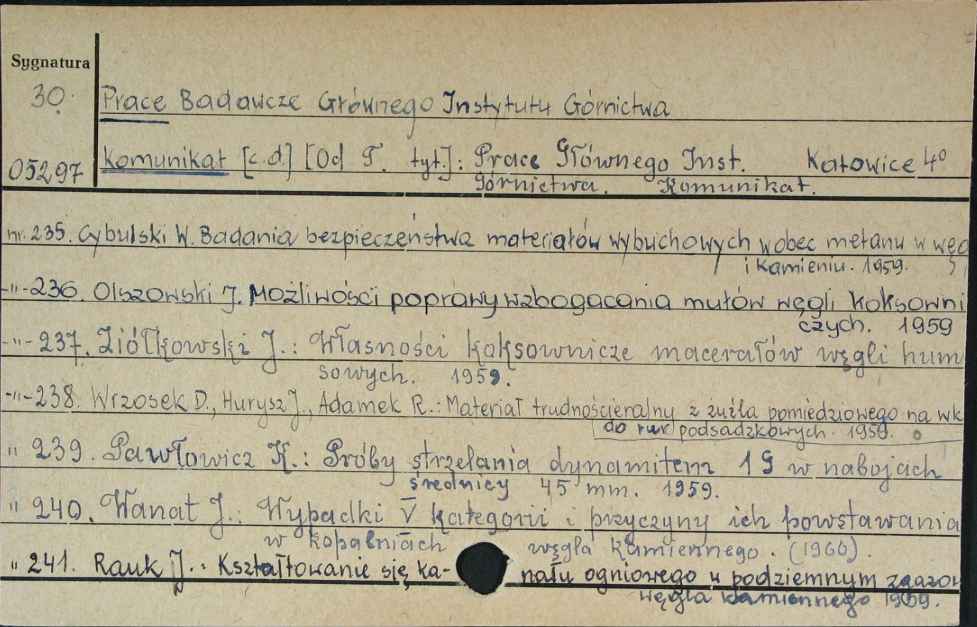 Sygnatura
30. Prace Badawcze Głównego Instytutu Górnictwa
05297 Komunikat [c.d.] [Od T. tyt.]: Prace Głównego Inst. Katowice 4°
Górnictwa. Komunikat.
nr. 235. Cybulski W. Badania bezpieczeństwa materiałów wybuchowych wobec metanu w węg
i Kamieniu. 1959.
-"-236. Olszowski J. Możliwości poprawy wzbogacania mułów węgli koksowni
czych. 1959
-"-237. Ziółkowski J.: Własności koksownicze macerałów węgli hum
sowych. 1959.
-"-238. Wrzosek D., Hurysz J., Adamek R.: Materiał trudnościeralny z żużla pomiedziowego na wk
do rur podsadzkowych. 1959.
" 239. Pawłowicz K.: Próby strzelania dynamitem 1 G w nabojach
średnicy 45 mm. 1959.
" 240. Wanat J.: Wypadki V kategorii i przyczyny ich powstawania
w kopalniach węgla kamiennego. (1960).
" 241. Rauk J.: Kształtowanie się ka- nału ogniowego w podziemnym zgazow
węgla kamiennego 1959.